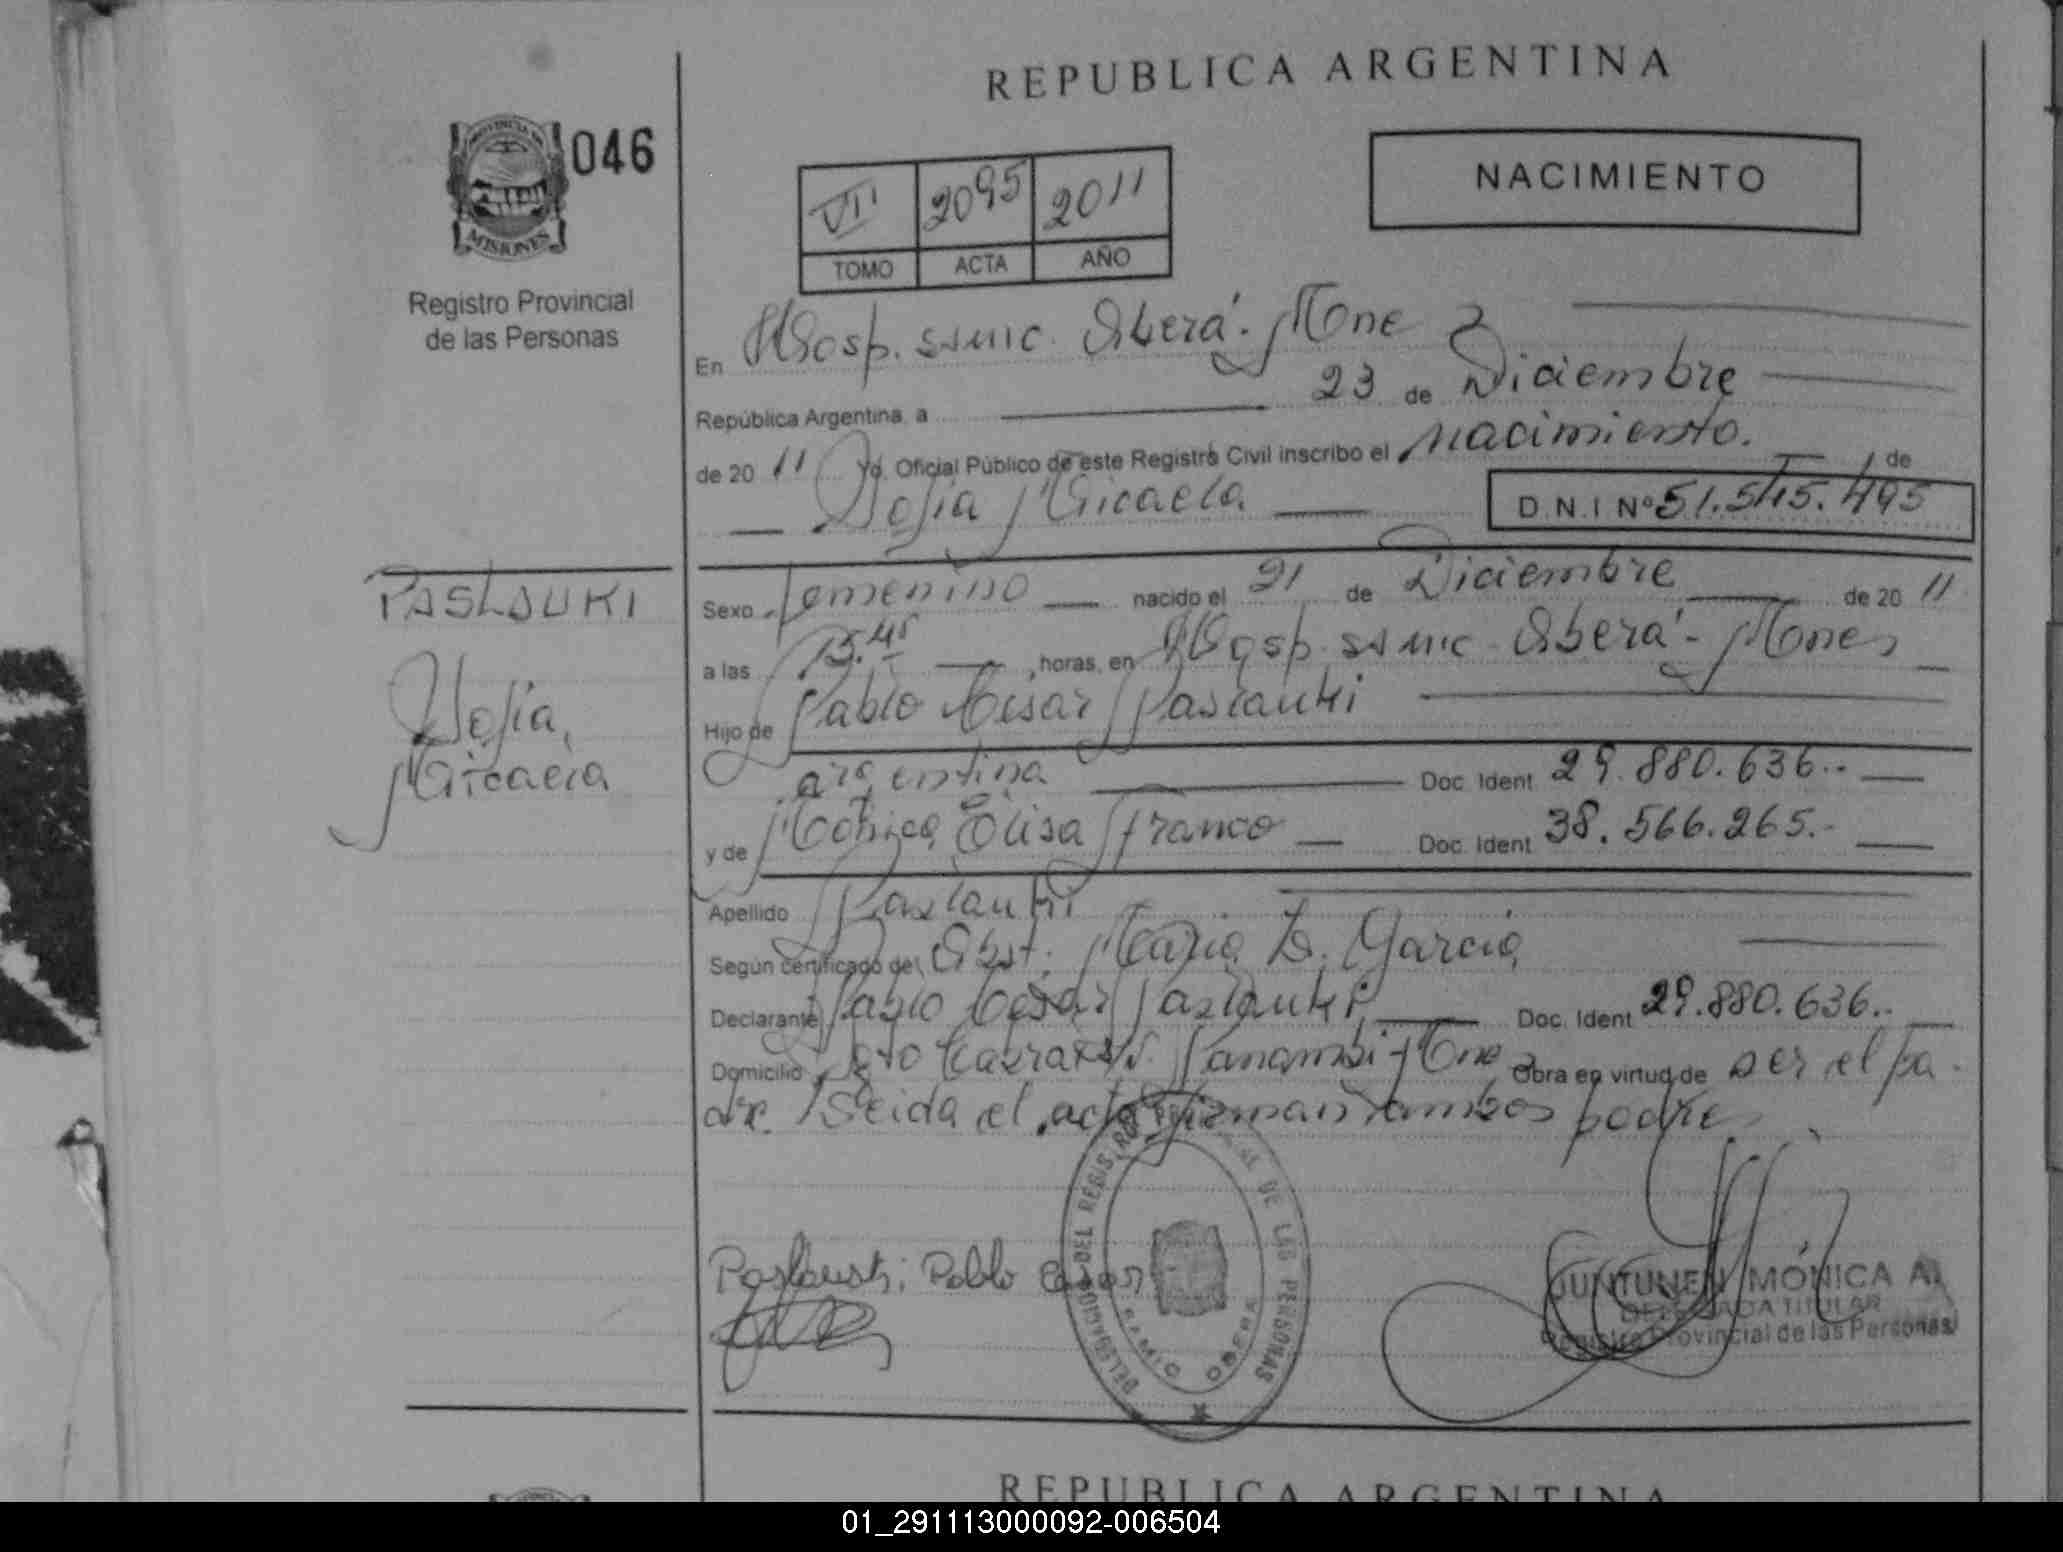 REPUBLICA ARGENTINA
046
PROVINCIA DE
MISIONES
Registro Provincial
de las Personas
VII 2095 2011
TOMO ACTA AÑO
NACIMIENTO
En Hosp. ssmic. Oberá - Mnes
República Argentina, a 23 de Diciembre
de 20 11 Yo, Oficial Público de este Registro Civil inscribo el Nacimiento. de
Sofía Micaela D.N.I Nº 51.515.495
PASLAUKI
Sofía,
Micaela
Sexo femenino nacido el 21 de Diciembre de 20 11
a las 15.45 horas, en Hosp. ssmic - Oberá - Mnes
Hijo de Pablo César Paslauki
argentina Doc. Ident 29.880.636.-
y de Mónica Elisa Franco Doc. Ident 38.566.265.-
Apellido Paslauki
Según certificado de Obst. María D. García
Declarante Pablo César Paslauki Doc. Ident 29.880.636.-
Domicilio Panambí - Mnes Obra en virtud de ser el pa-
dre. Leida el acta firman ambos padres
Pablo Cesar
DELEGACION DEL REGISTRO DE LAS PERSONAS
OBERA
JUNTUNEN MÓNICA A.
DELEGADA TITULAR
Registro Provincial de las Personas
REPUBLICA ARGENTINA
01_291113000092-006504